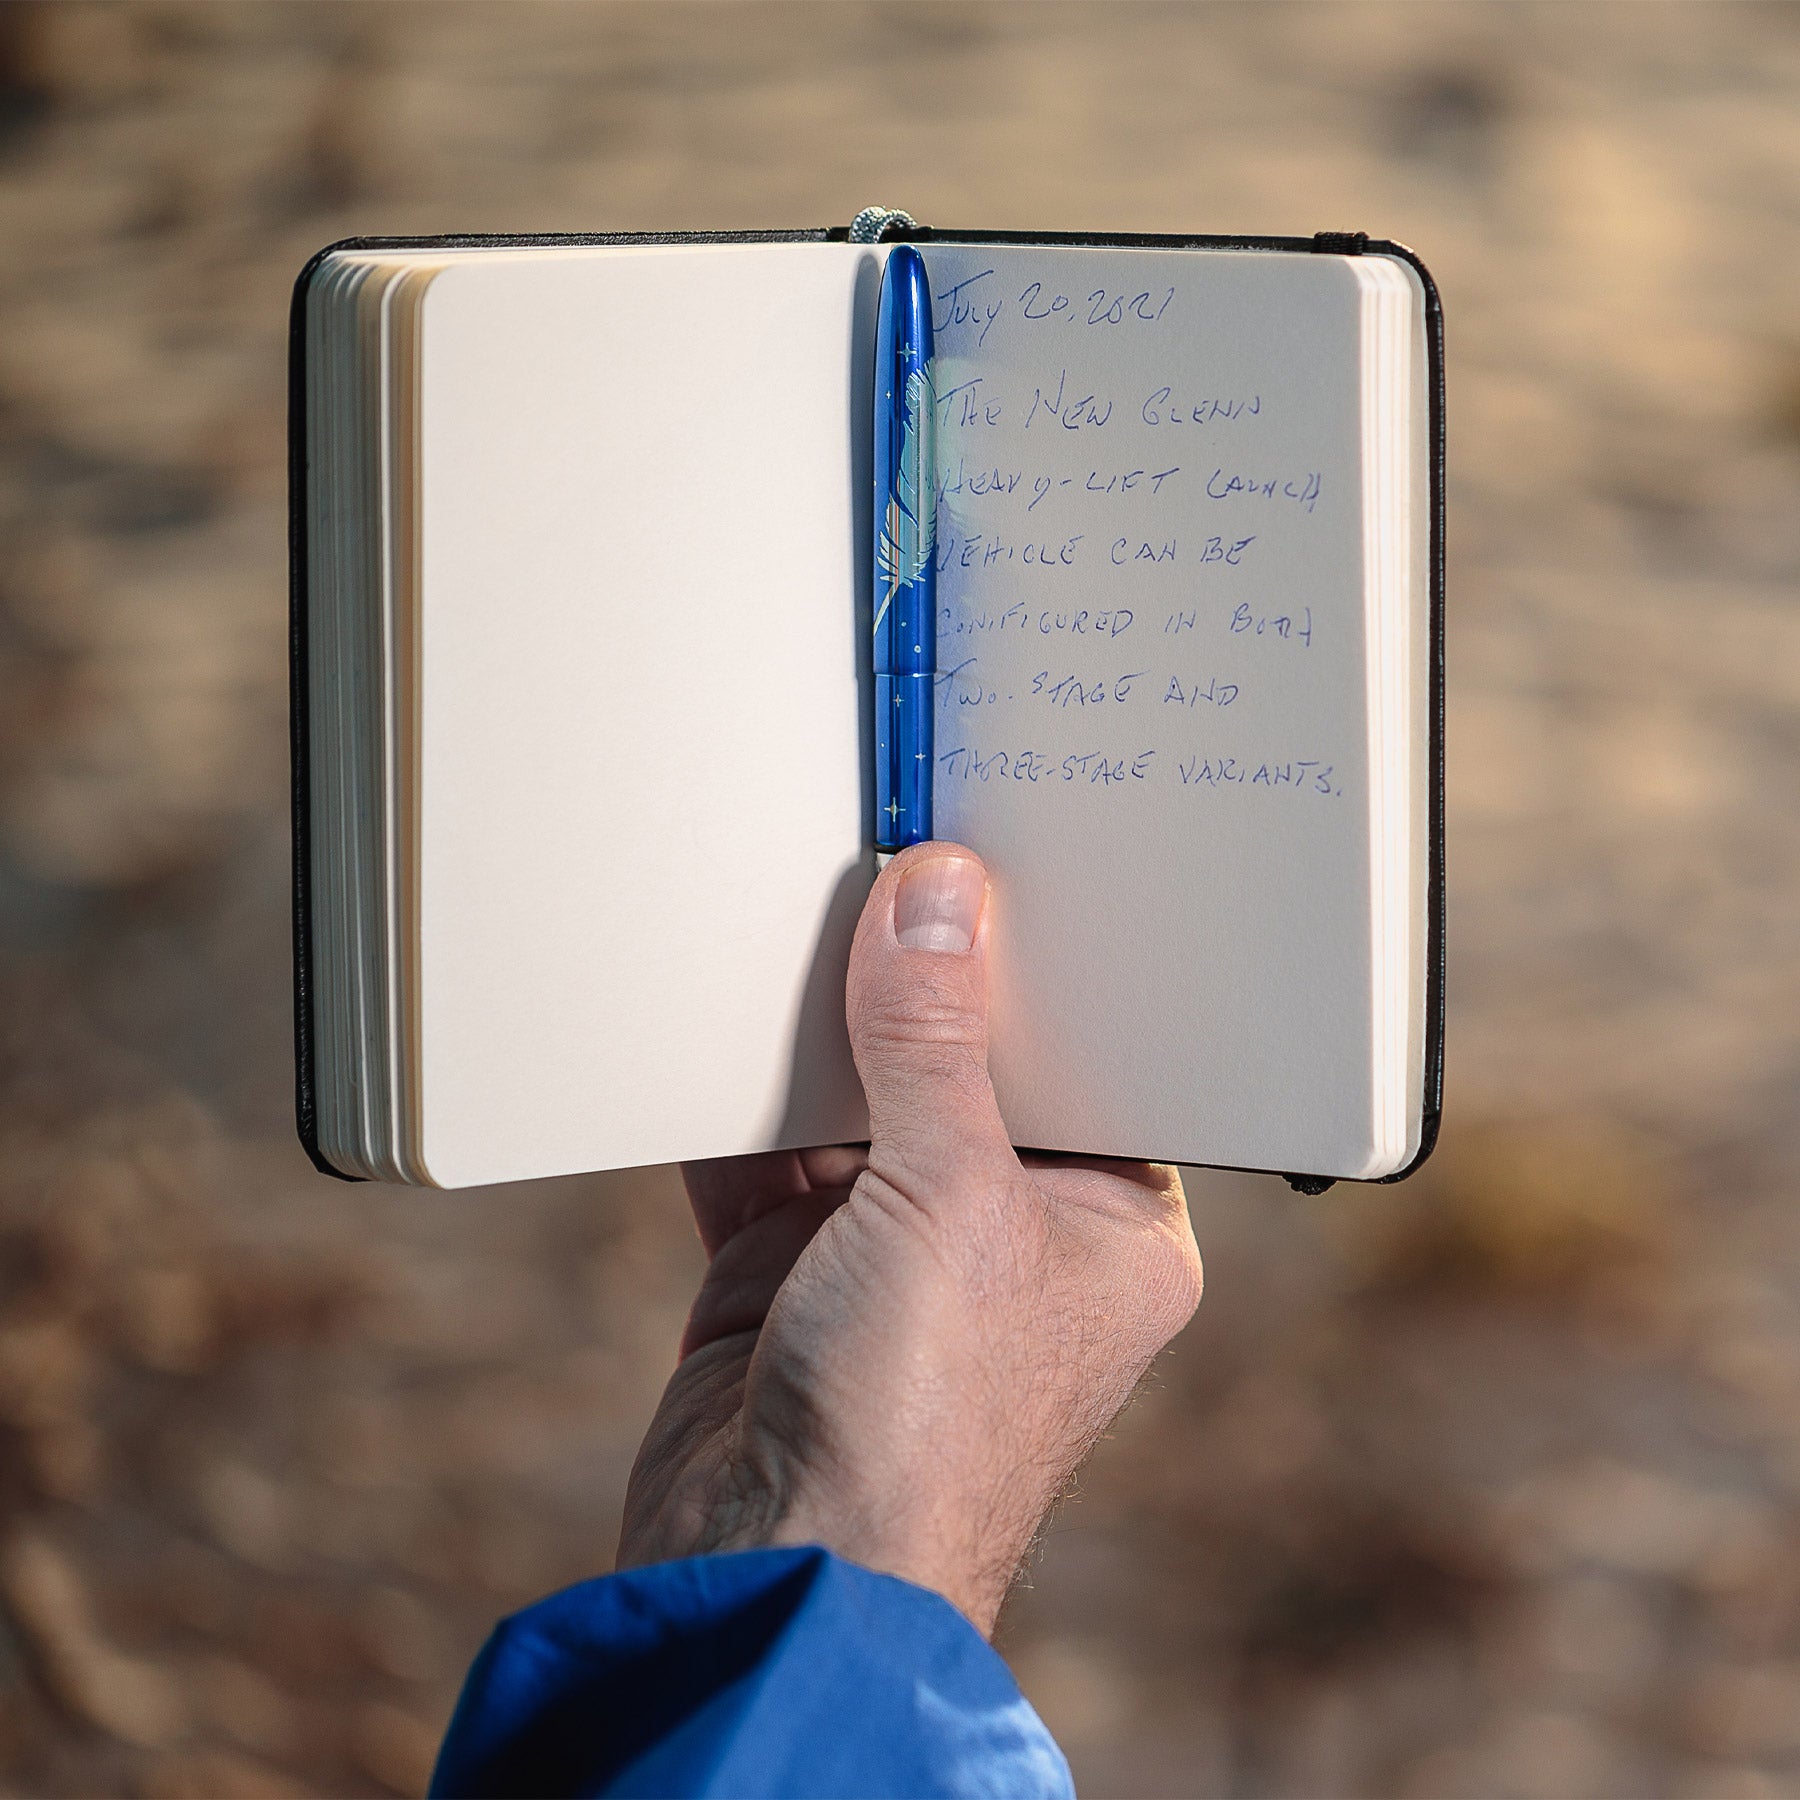 July 20, 2021
THE NEW GLENN
HEAVY-LIFT LAUNCH
VEHICLE CAN BE
CONFIGURED IN BOTH
TWO-STAGE AND
THREE-STAGE VARIANTS.